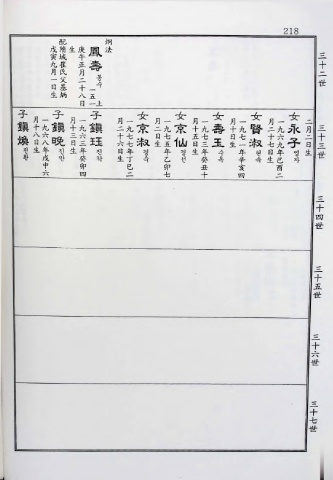 218
三十二世
三十三世
三十四世
三十五世
三十六世
三十七世
炯法
鳳壽 봉수
上
一五一
庚午正月二十八日
生
配隋城崔氏父基炳
戊寅九月一日生
二月二日生
女永子 영자
一九六九年己酉二
月二十七日生
女賢淑 현숙
一九七一年辛亥四
月十日生
女壽玉 수옥
一九七三年癸丑十
月十五日生
女京仙 경선
一九七五年乙卯七
月二日生
女京淑 경숙
一九七七年丁巳二
月二十六日生
子鎭珏 진각
一九六三年癸卯四
月十三日生
子鎭晩 진만
一九六八年戊申六
月十八日生
子鎭煥 진환